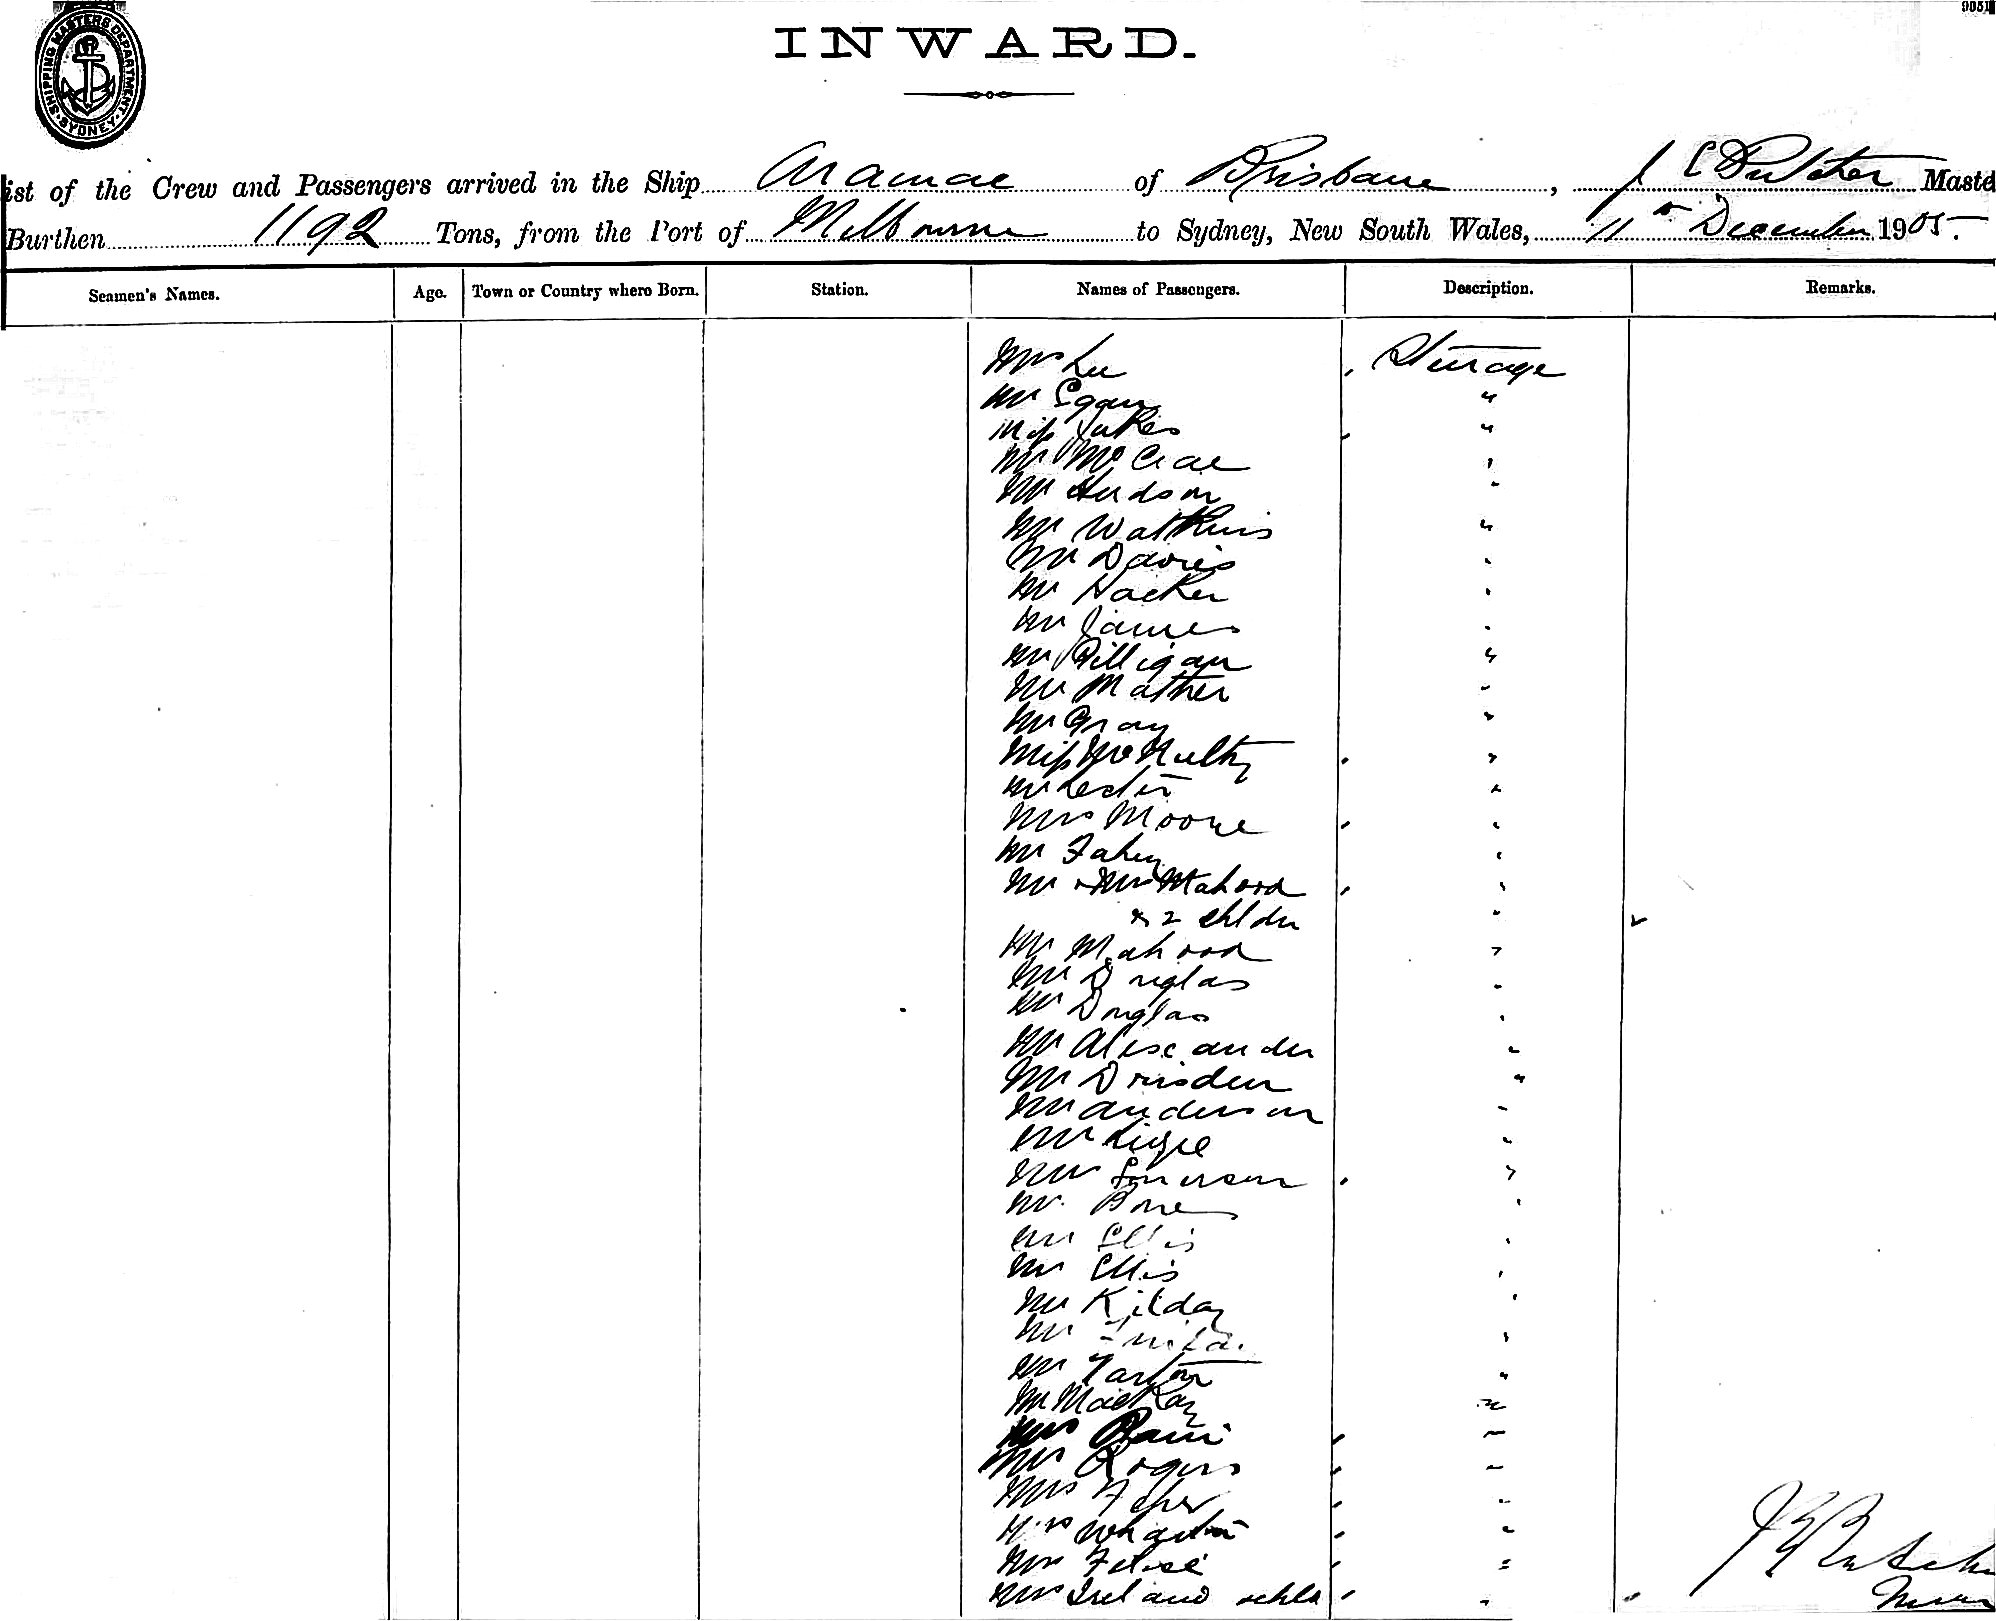 9051
SHIPPING MASTERS DEPARTMENT SYDNEY
INWARD.
ist of the Crew and Passengers arrived in the Ship Aramac of Brisbane, J C Butcher Maste
Burthen 1192 Tons, from the Port of Melbourne to Sydney, New South Wales, 11th December 1905.
Seamen's Names. Age. Town or Country where Born. Station. Names of Passengers. Description. Remarks.
Mrs Lee Steerage
Mr Egan "
Miss Jukes "
Mr McCrae "
Mr Hudson "
Mr Watkins "
Mr Davies "
Mr Hacker "
Mr James "
Mr Gilligan "
Mr Mather "
Mr Gray "
Miss McNulty "
Mr Lester "
Mrs Moore "
Mr Fahey "
Mr & Mrs Mahood "
& 2 chldn "
Mr Mahood "
Mr Douglas "
Mr Douglas "
Mr Alexander "
Mr Drisden "
Mr Anderson "
Mr Lizzie "
Mrs "
Mr. Bone "
Mr Ellis "
Mr Ellis "
Mr Kilday "
Mr "
Mr Tarlton "
Mr MacKay "
Mrs "
Mrs Rogers "
Mrs "
Mrs Wharton "
Mrs "
Mrs Ireland & chld "